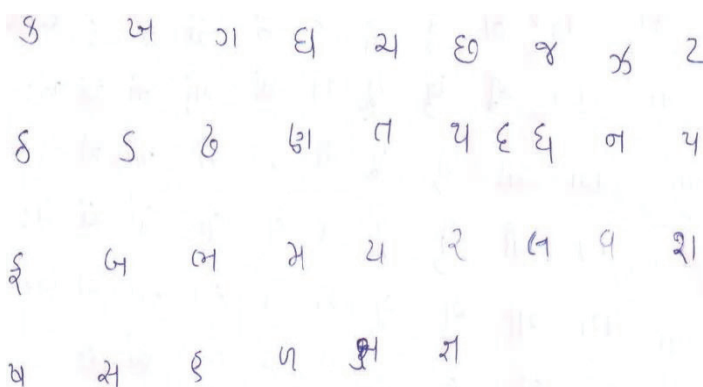 ક ખ ગ ઘ ચ છ જ ઝ ટ
ઠ ડ ઢ ણ ત થ દ ધ ન પ
ફ બ ભ મ ય ર લ વ શ
ષ સ હ ળ ક્ષ જ્ઞ